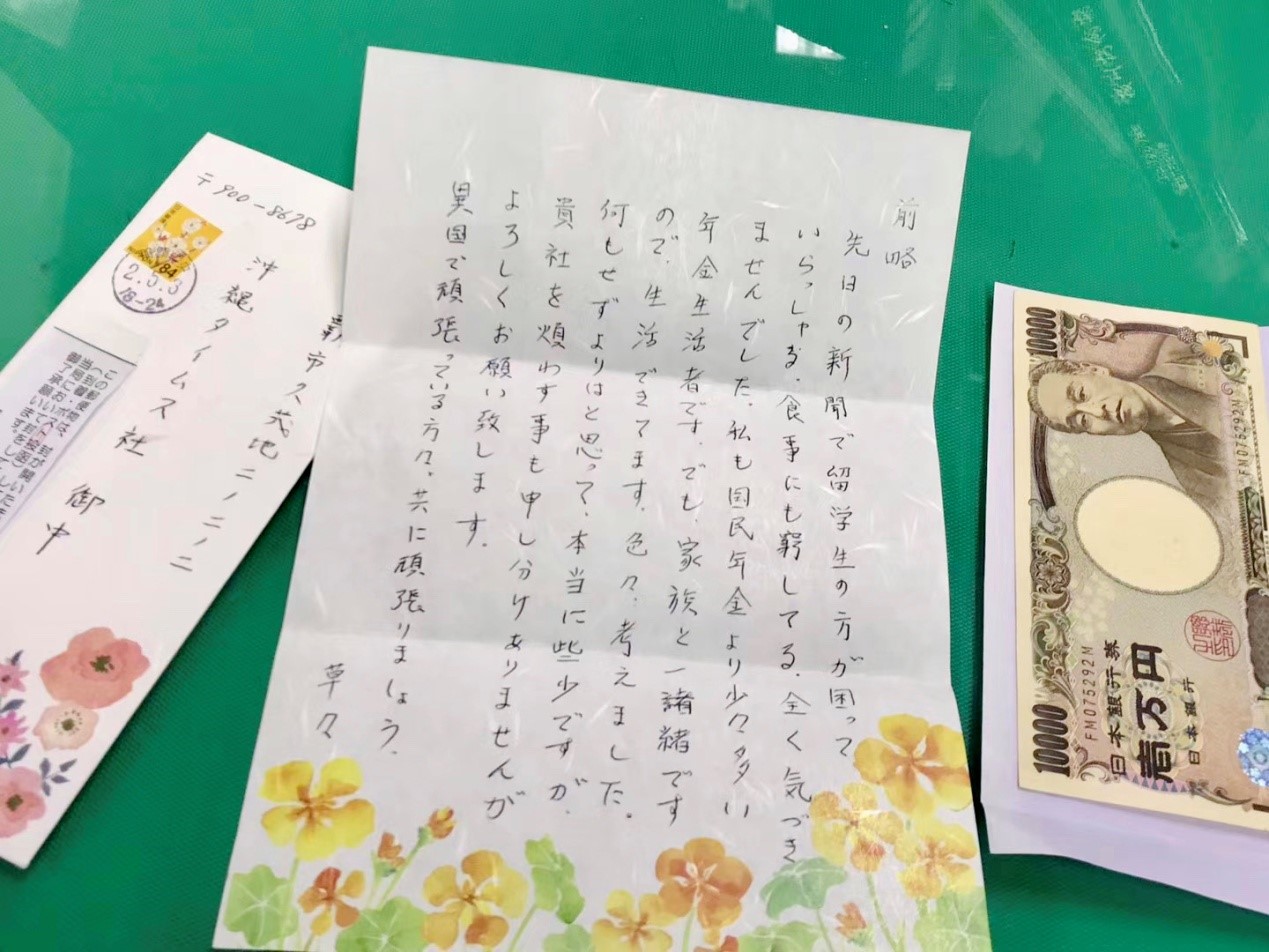 前略
先日の新聞で留学生の方が困って
いらっしゃる.食事にも窮してる.全く気づき
ませんでした.私も国民年金より少々多い
年金生活者です.でも、家族と一諸緒です
ので、生活できてます.色々.考えました.
何もせずよりはと思って、本当に些少ですが、
貴社を煩わす事も申し分けありませんが
よろしくお願い致します.
異国で頑張っている方々、共に頑張りましょう.
草々
〒900-8678
覇市久茂地二ノ二ノ二
沖縄タイムス社 御中
84
2.5.8
この郵便物は、
当郵便
10000
10000
FM075292M
FM075292M
日本銀行券
壱万円
日本銀行